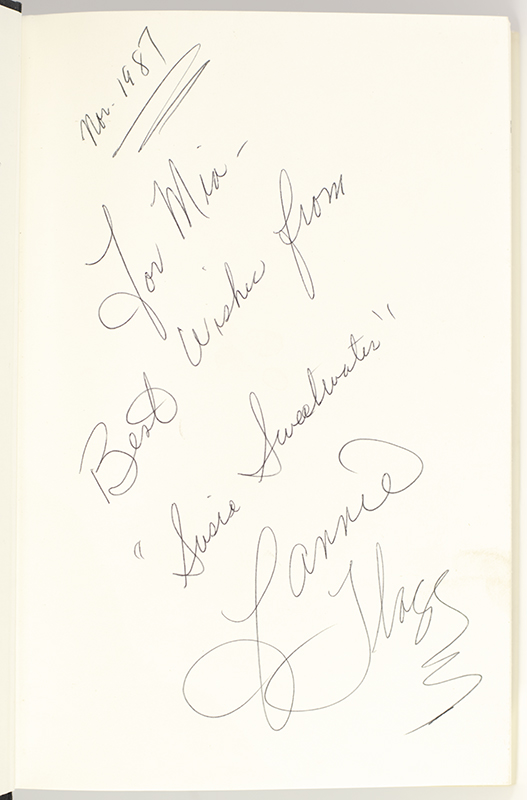 Nov. 1987
For Mia -
Best Wishes from
"Susie Sweetwater"
Fannie
Flagg